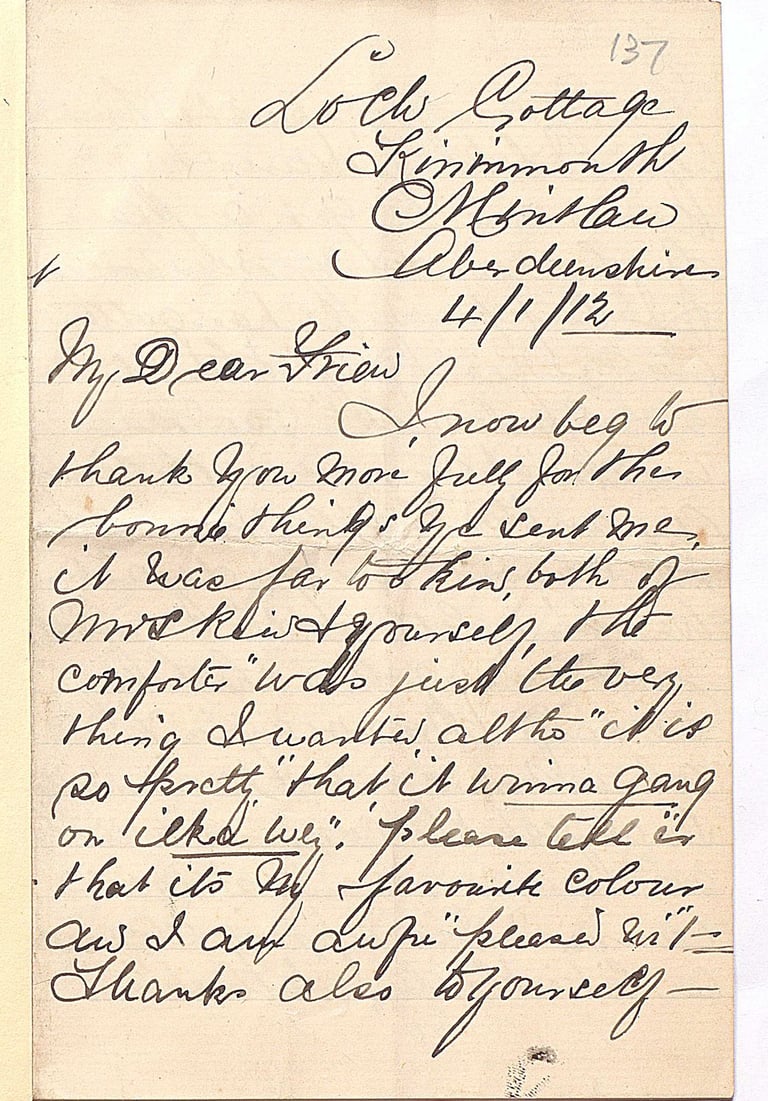 137
Loch Cottage
Kininmonth
Mintlaw
Aberdeenshire
4/1/12
My Dear Frien
I now beg to
thank you more fully for the
bonnie things ye sent me,
it was far too kin, both of
Mrs Skin & yourself, the
comforter" was just the very
thing I wanted, altho" it is
so pretty" that it winna gang
on ilka wey". please tell 'er
that its my favourite colour
and I am awfu" pleased wi't –
Thanks also to yourself –